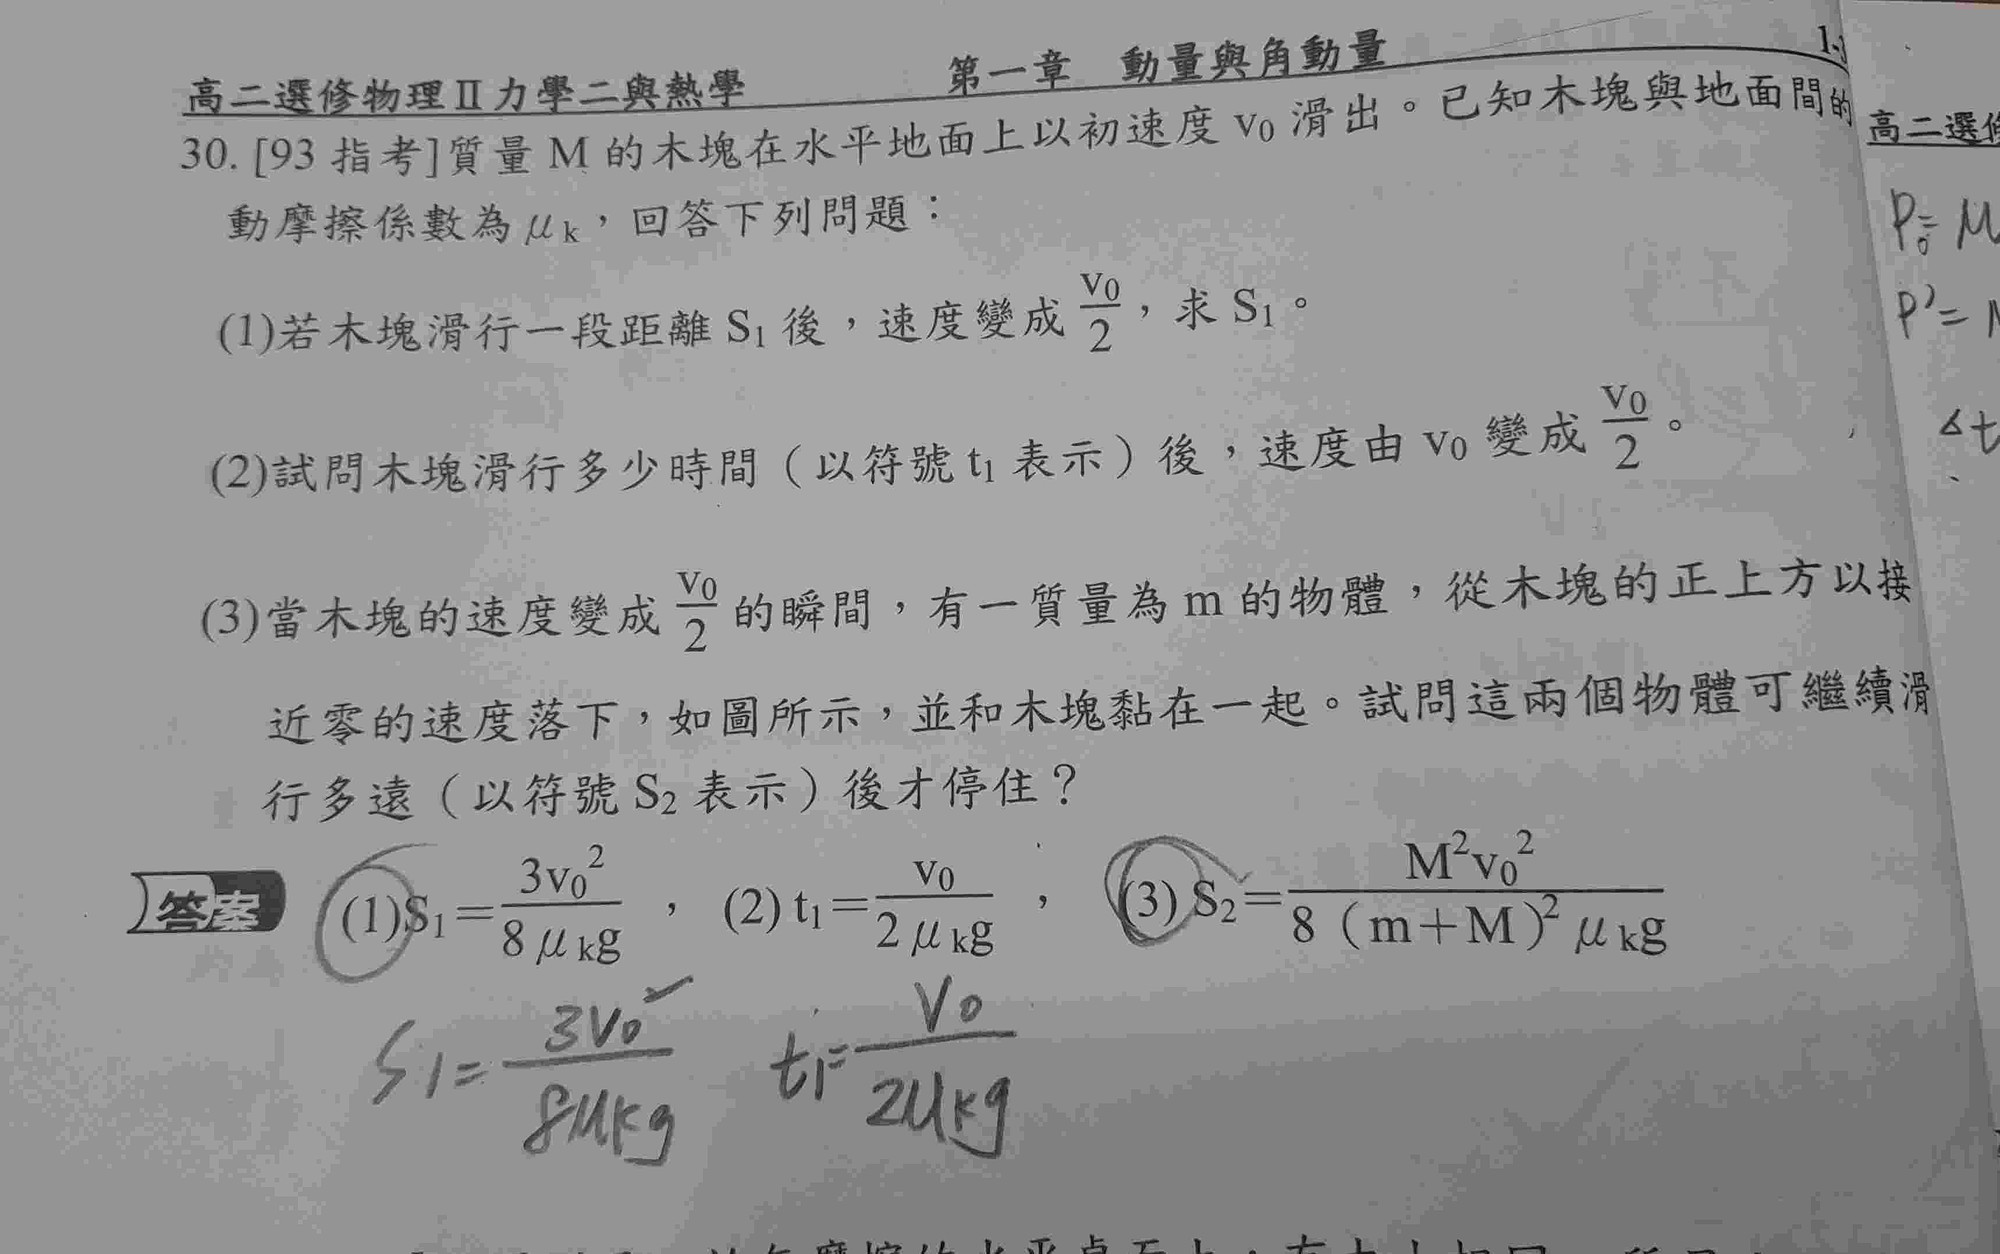 高二選修物理Ⅱ力學二與熱學 第一章 動量與角動量
30. [93 指考]質量 M 的木塊在水平地面上以初速度 v₀ 滑出。已知木塊與地面間的
動摩擦係數為 μₖ，回答下列問題：
(1)若木塊滑行一段距離 S₁ 後，速度變成 v₀/2，求 S₁。
(2)試問木塊滑行多少時間（以符號 t₁ 表示）後，速度由 v₀ 變成 v₀/2。
(3)當木塊的速度變成 v₀/2 的瞬間，有一質量為 m 的物體，從木塊的正上方以接
近零的速度落下，如圖所示，並和木塊黏在一起。試問這兩個物體可繼續滑
行多遠（以符號 S₂ 表示）後才停住？
答案 (1)S₁=3v₀²/8μₖg ， (2) t₁=v₀/2μₖg ， (3) S₂=M²v₀²/8（m+M）²μₖg
S1=3V₀/8μkg t1=V₀/2μkg
高二選
P₀=M
P'=
Δt